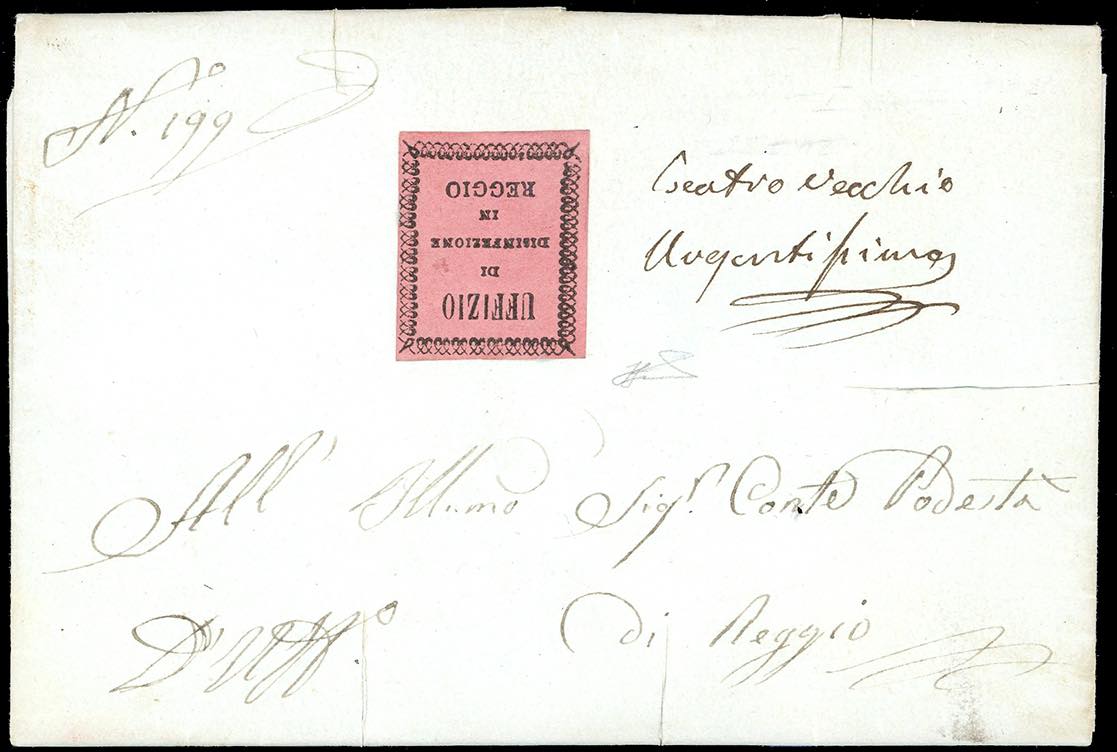 N.º 199
UFFIZIO
DI
DISINFEZIONE
IN
REGGIO
Teatro Vecchio
Urgentissima
All' Illmo Sigr Conte Podestà
D'Uffº.
di Reggio